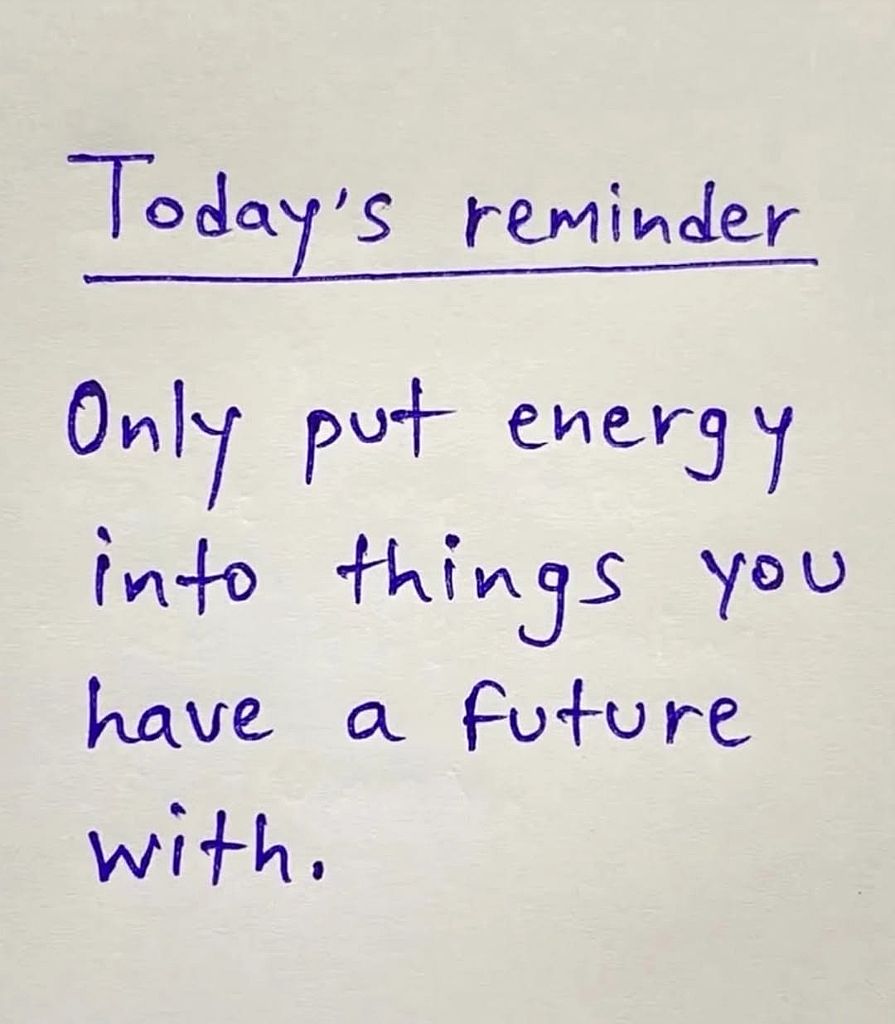 Today's reminder
Only put energy
into things you
have a future
with.